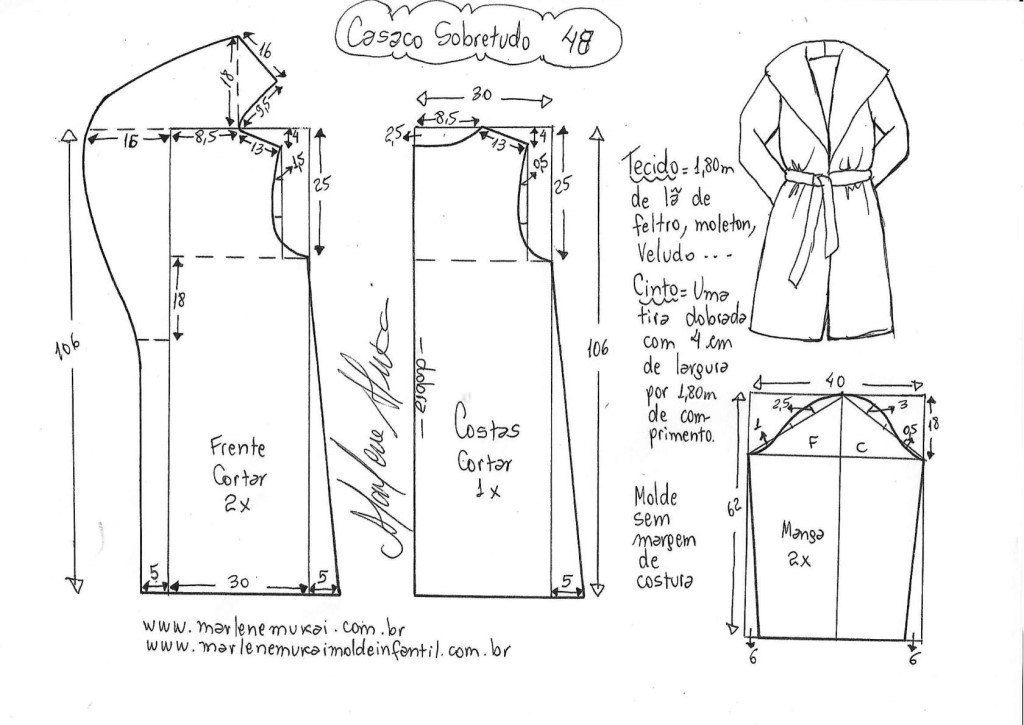 Casaco Sobretudo 48
16
18
9,5
16
8,5
13
4
1,5
25
18
106
Frente
Cortar
2x
5
30
5
30
8,5
2,5
13
4
0,5
25
dobra
106
Costas
Cortar
1x
5
Marlene Mukai
Tecido = 1,80m
de lã de
feltro, moleton,
Veludo ...
Cinto = Uma
tira dobrada
com 4 cm
de largura
por 1,80m
de com-
primento.
Molde
sem
margem
de
costura
40
2,5
3
1
0,5
18
F
C
62
Manga
2x
6
6
www.marlenemukai.com.br
www.marlenemukaimoldeinfantil.com.br